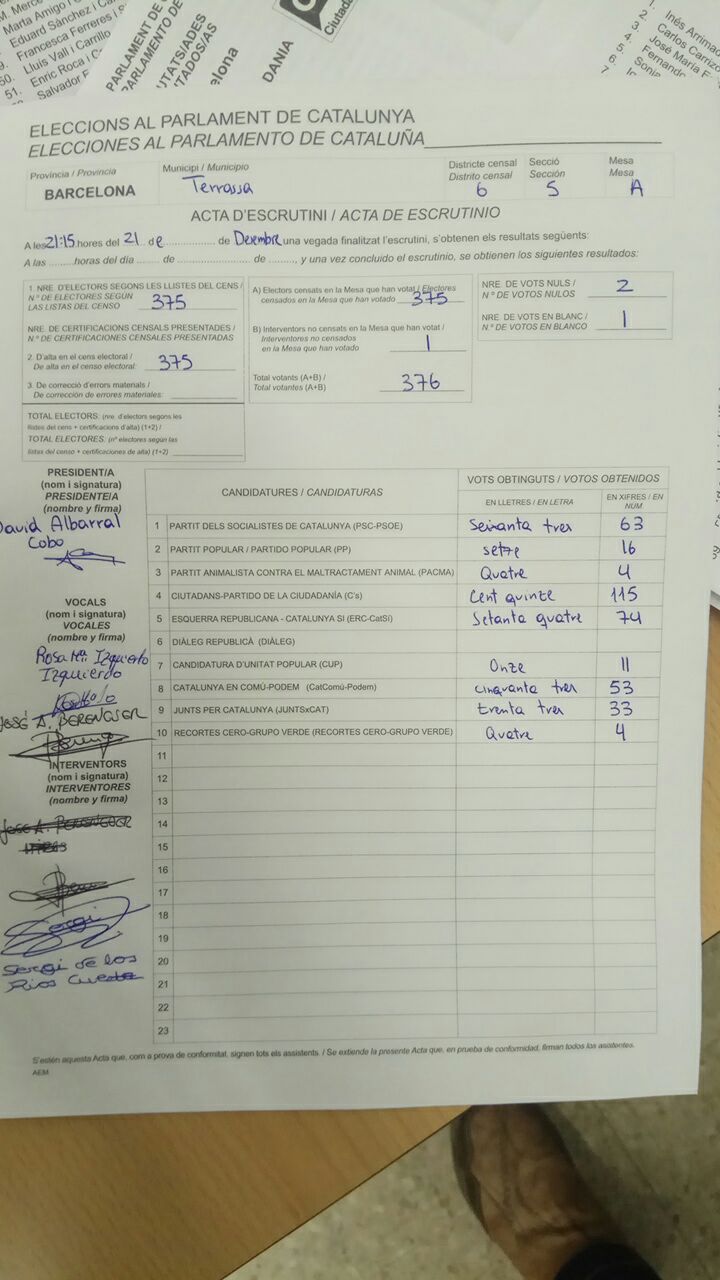 Marta Amigo i
Eduard Sánchez i Ca
Francesca Ferreres i S
50. Lluís Vall i Carrillo
51. Enric Roca i C
Salvador F
PARLAMENT DE
PARLAMENTO DE
DANIA
Ciutada
1. Inés Arrima
2. Carlos Carrizo
3. José María F
4. Fernando
5. Sonia
ELECCIONS AL PARLAMENT DE CATALUNYA
ELECCIONES AL PARLAMENTO DE CATALUÑA
Província / Provincia
BARCELONA
Municipi / Municipio
Terrassa
Districte censal
Distrito censal
6
Secció
Sección
5
Mesa
Mesa
A
ACTA D'ESCRUTINI / ACTA DE ESCRUTINIO
A les 21:15 hores del 21 de ............... de Desembre una vegada finalitzat l'escrutini, s'obtenen els resultats següents:
A las ........horas del día ....... de ............... de ........, y una vez concluido el escrutinio, se obtienen los siguientes resultados:
1. NRE. D'ELECTORS SEGONS LES LLISTES DEL CENS /
N.º DE ELECTORES SEGÚN
LAS LISTAS DEL CENSO 375
NRE. DE CERTIFICACIONS CENSALS PRESENTADES /
N.º DE CERTIFICACIONES CENSALES PRESENTADAS
2. D'alta en el cens electoral /
De alta en el censo electoral: 375
3. De correcció d'errors materials /
De corrección de errores materiales:
TOTAL ELECTORS: (nre. d'electors segons les
llistes del cens + certificacions d'alta) (1+2) /
TOTAL ELECTORES: (nº electores según las
listas del censo + certificaciones de alta) (1+2)
A) Electors censats en la Mesa que han votat / Electores
censados en la Mesa que han votado 375
B) Interventors no censats en la Mesa que han votat /
Interventores no censados
en la Mesa que han votado 1
Total votants (A+B) /
Total votantes (A+B) 376
NRE. DE VOTS NULS /
N.º DE VOTOS NULOS 2
NRE. DE VOTS EN BLANC /
N.º DE VOTOS EN BLANCO 1
PRESIDENT/A
(nom i signatura)
PRESIDENTE/A
(nombre y firma)
David Albarral
Cobo
VOCALS
(nom i signatura)
VOCALES
(nombre y firma)
Rosa Mª. Izquierdo
Izquierdo
JOSÉ A. BERENGUER
INTERVENTORS
(nom i signatura)
INTERVENTORES
(nombre y firma)
JOSE A. BERENGUER
Sergi
Sergi de los
Rios Cuesta
CANDIDATURES / CANDIDATURAS
VOTS OBTINGUTS / VOTOS OBTENIDOS
EN LLETRES / EN LETRA
EN XIFRES / EN NUM.
1 PARTIT DELS SOCIALISTES DE CATALUNYA (PSC-PSOE) Seixanta tres 63
2 PARTIT POPULAR / PARTIDO POPULAR (PP) setze 16
3 PARTIT ANIMALISTA CONTRA EL MALTRACTAMENT ANIMAL (PACMA) Quatre 4
4 CIUTADANS-PARTIDO DE LA CIUDADANÍA (C's) Cent quinze 115
5 ESQUERRA REPUBLICANA - CATALUNYA SI (ERC-CatSí) Setanta quatre 74
6 DIÀLEG REPUBLICÀ (DIÀLEG)
7 CANDIDATURA D'UNITAT POPULAR (CUP) Onze 11
8 CATALUNYA EN COMÚ-PODEM (CatComú-Podem) cinquanta tres 53
9 JUNTS PER CATALUNYA (JUNTSxCAT) trenta tres 33
10 RECORTES CERO-GRUPO VERDE (RECORTES CERO-GRUPO VERDE) Quatre 4
11
12
13
14
15
16
17
18
19
20
21
22
23
S'estén aquesta Acta que, com a prova de conformitat, signen tots els assistents. / Se extiende la presente Acta que, en prueba de conformidad, firman todos los asistentes.
AEM